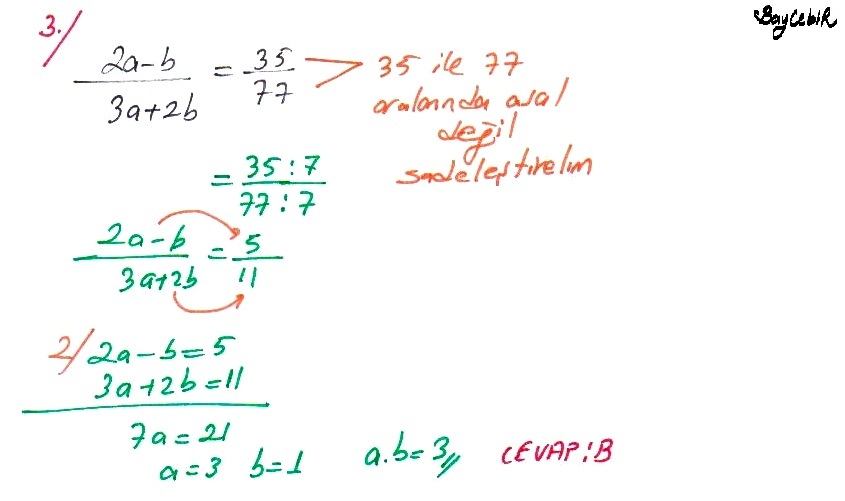 BayCebiR
3./
2a-b / 3a+2b = 35 / 77
35 ile 77
aralarında asal
değil
sadeleştirelim
= 35:7 / 77:7
2a-b / 3a+2b = 5 / 11
2/ 2a-b=5
3a+2b=11
7a=21
a=3 b=1 a.b=3// CEVAP:B